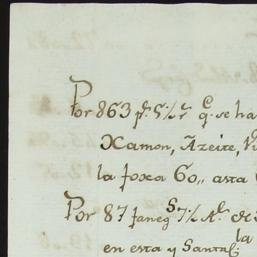 Por 863 p.s 5½ r.s q.e se ha
Xamon, Azeite, Vi
la foxa 60,, asta
Por 87 faneg.s 7½ Al.s de
en esta y Santa la